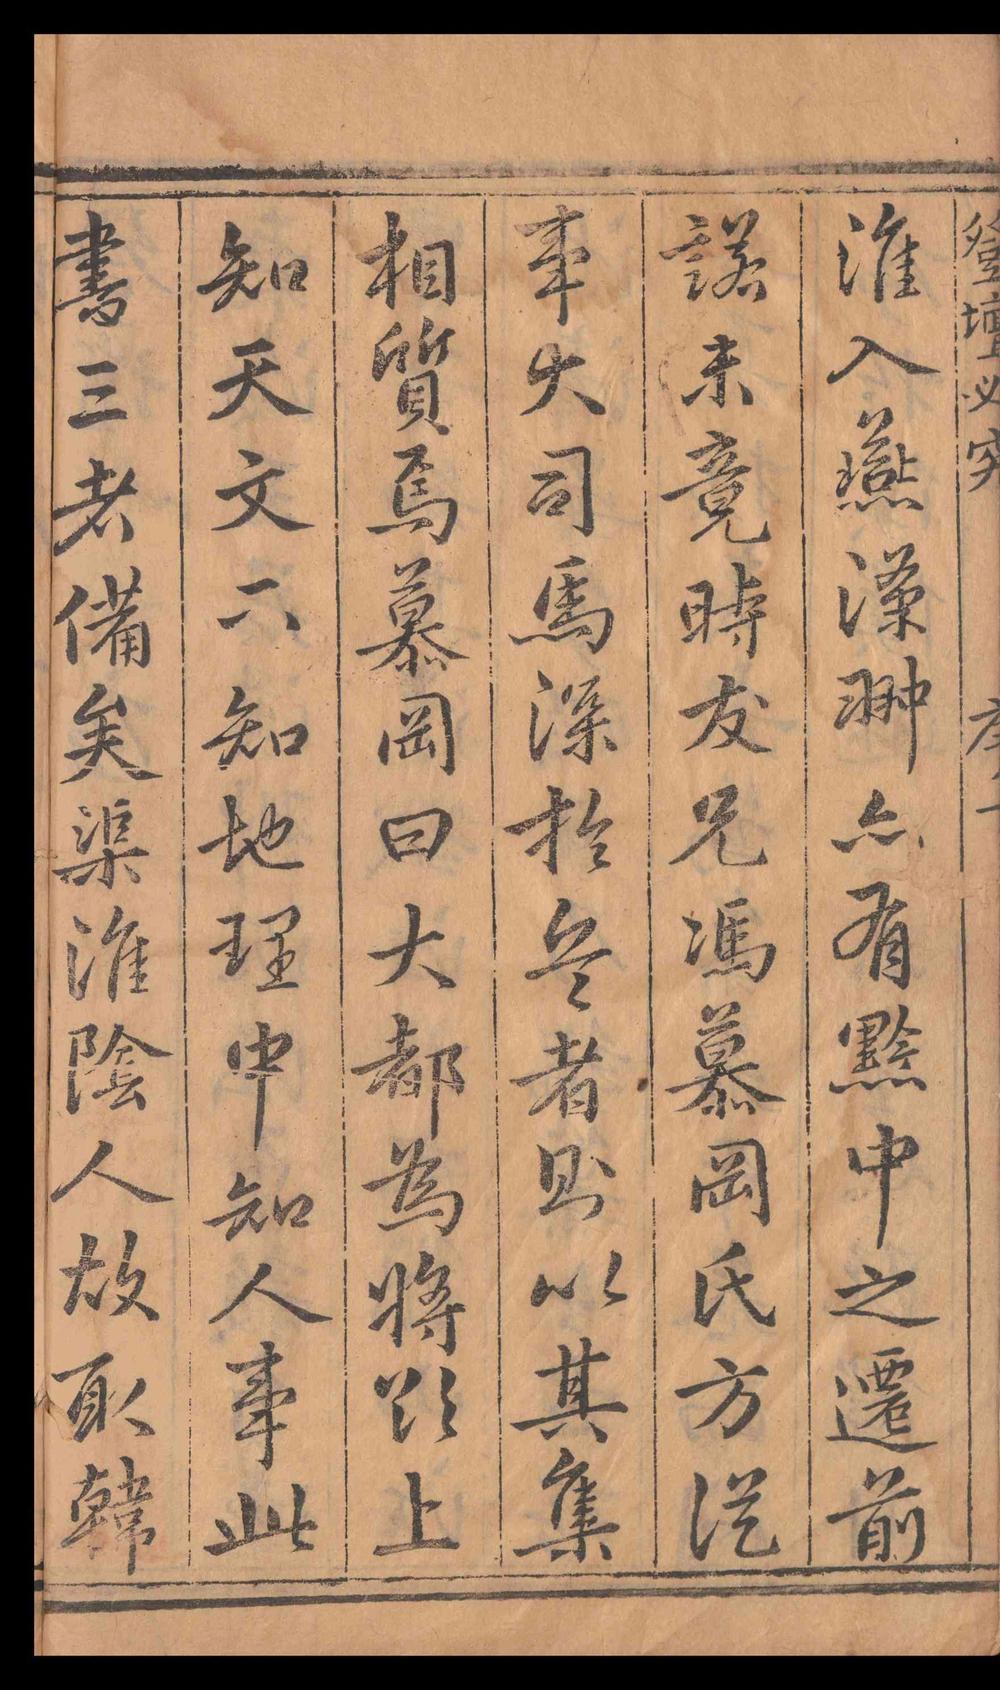 登壇必究
淮入燕薻翀亦有黔中之遷前
諾未竟時友兄馮慕岡氏方從
事大司馬深於兵者則以其集
相質焉慕岡曰大都為將欲上
知天文下知地理中知人事此
書三者備矣渠淮陰人故取韓